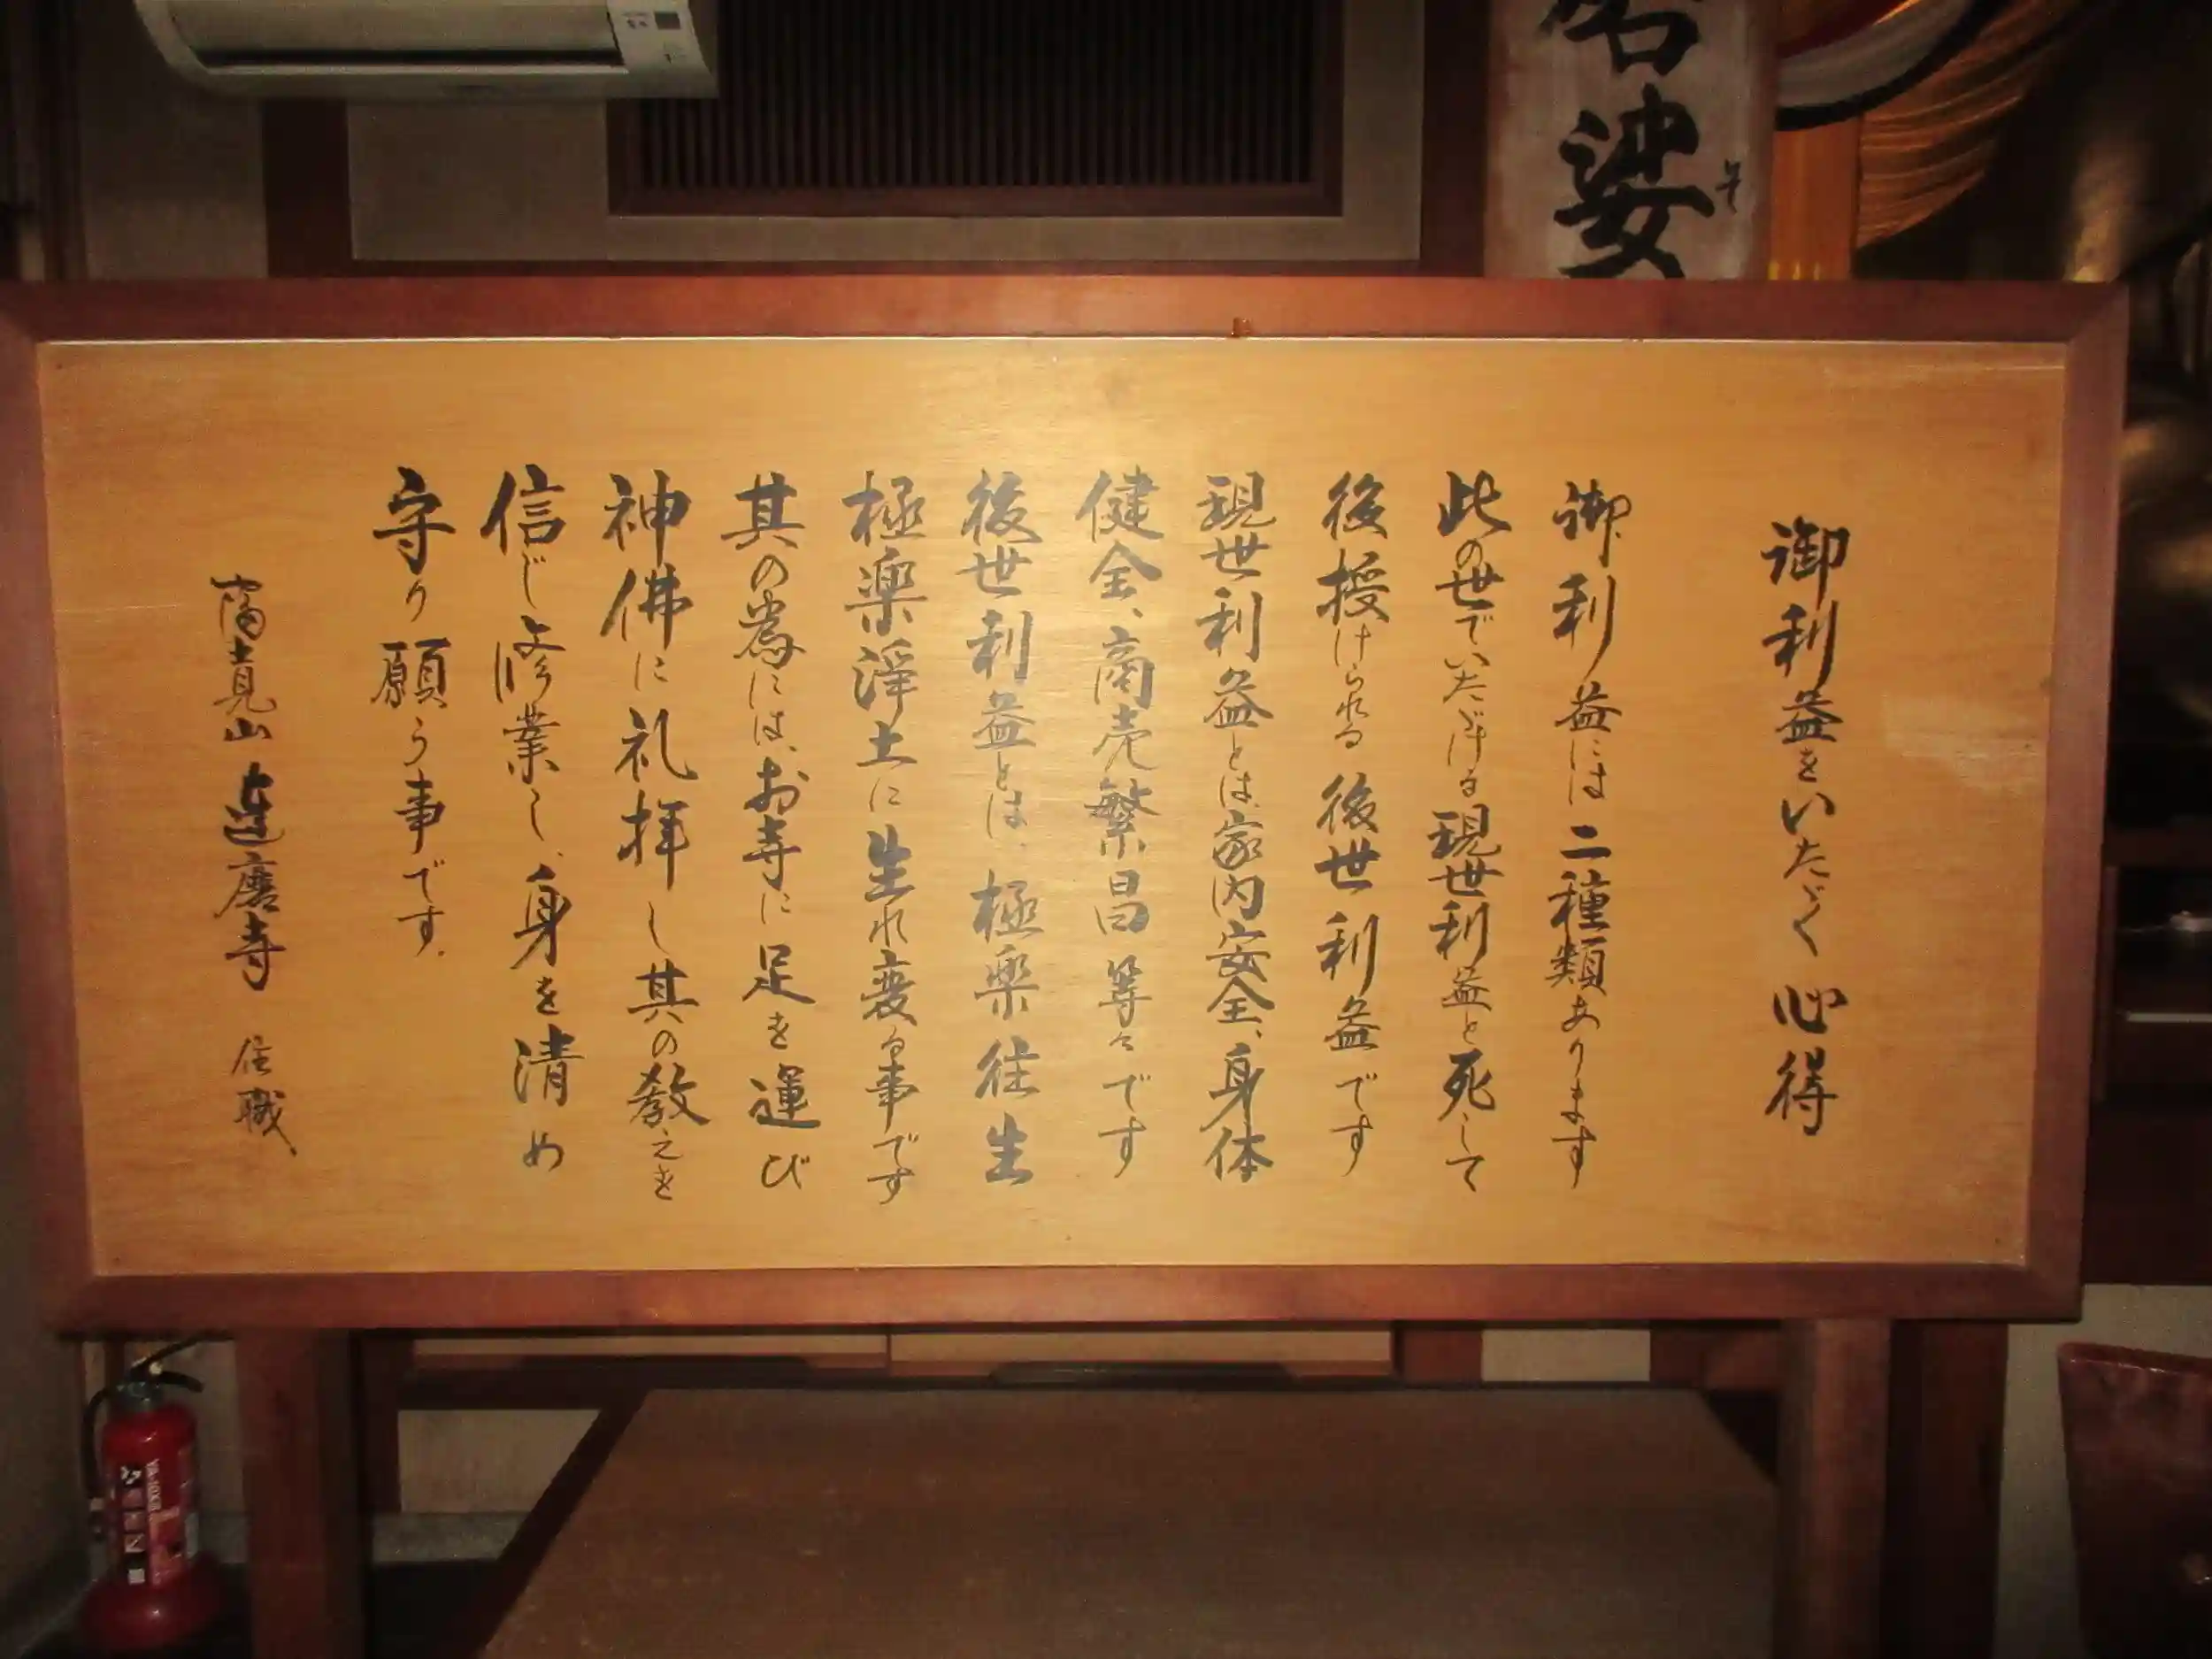 御利益をいただく心得
御利益には二種類あります
此の世でいただける現世利益と死して
後授けられる後世利益です
現世利益とは、家内安全、身体
健全、商売繁昌等々です
後世利益とは、極楽往生
極楽浄土に生れ変る事です
其の為には、お寺に足を運び
神佛に礼拝し其の教えを
信じ修業し、身を清め
守り願う事です。
富士見山 達磨寺 住職
婆
そ
YAMATO